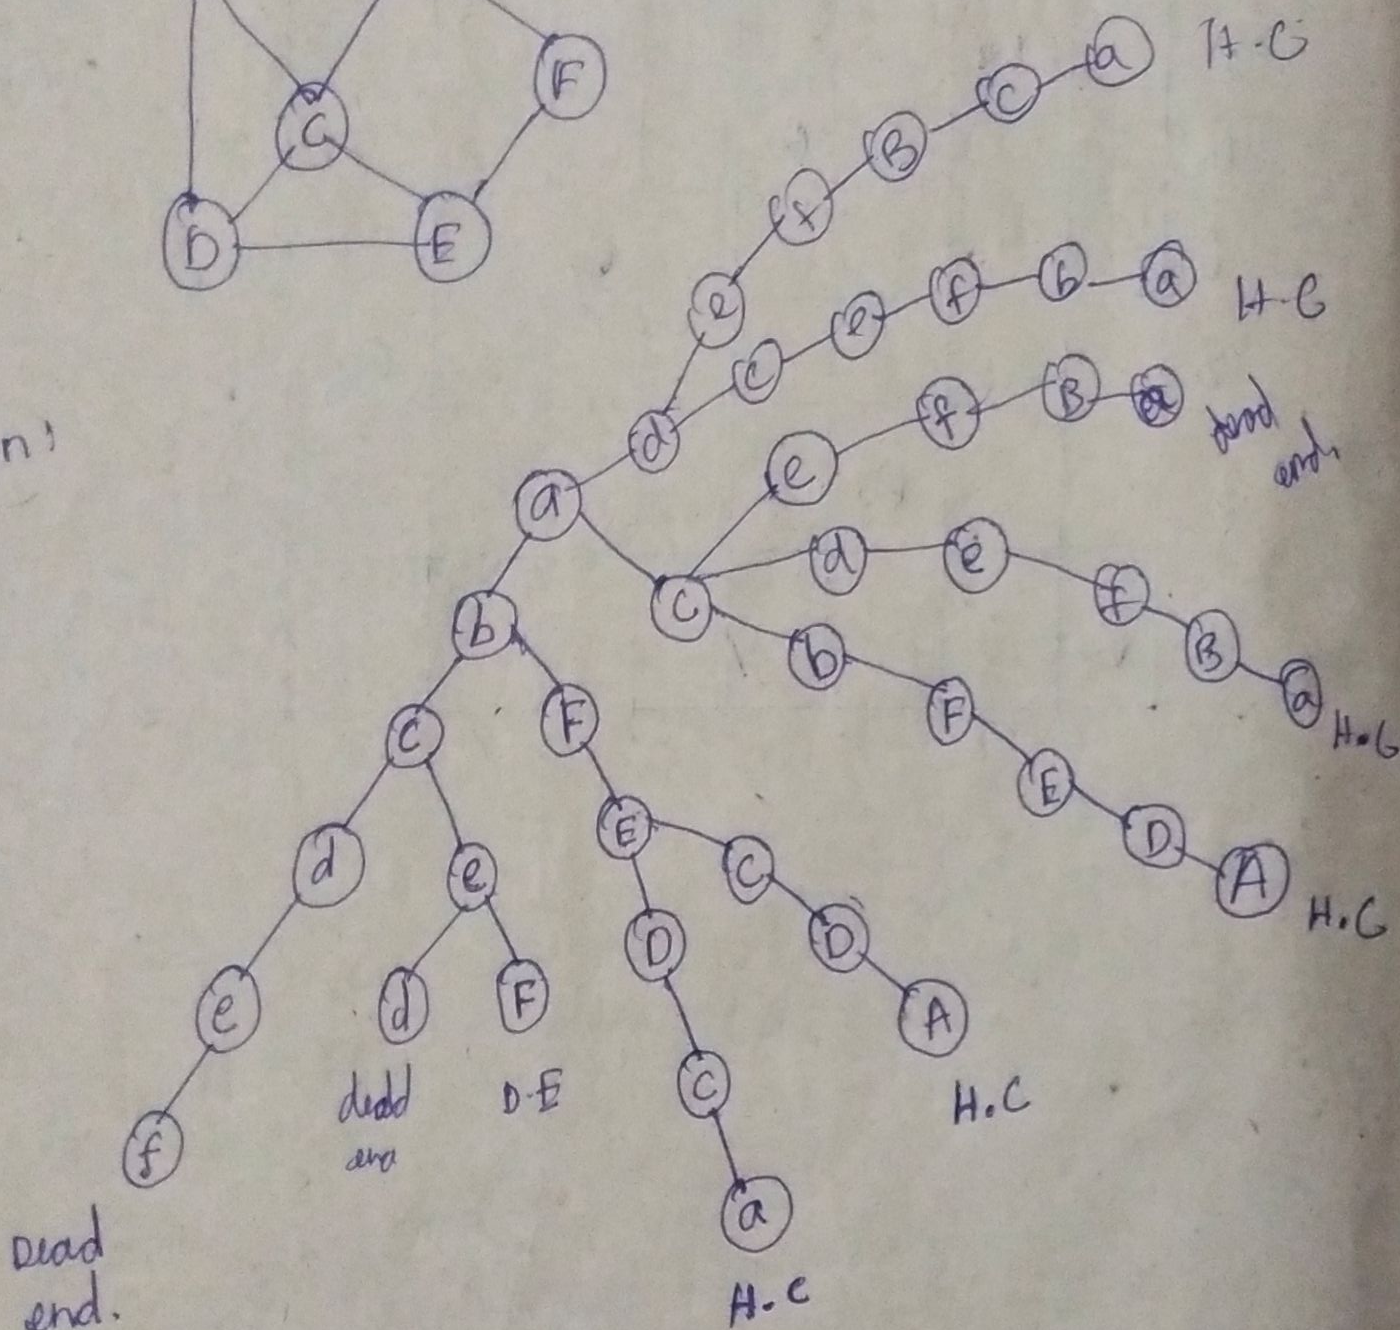 F
C
D
E
n!
a
d
e
f
B
C
a
H.C
C
e
f
b
a
H.C
C
e
f
B
a
dead
end.
d
e
f
B
a
H.C
b
F
E
D
A
H.C
b
C
d
e
f
Dead
end.
e
d
dead
end
F
D.E
F
E
C
D
A
H.C
D
C
a
H.C